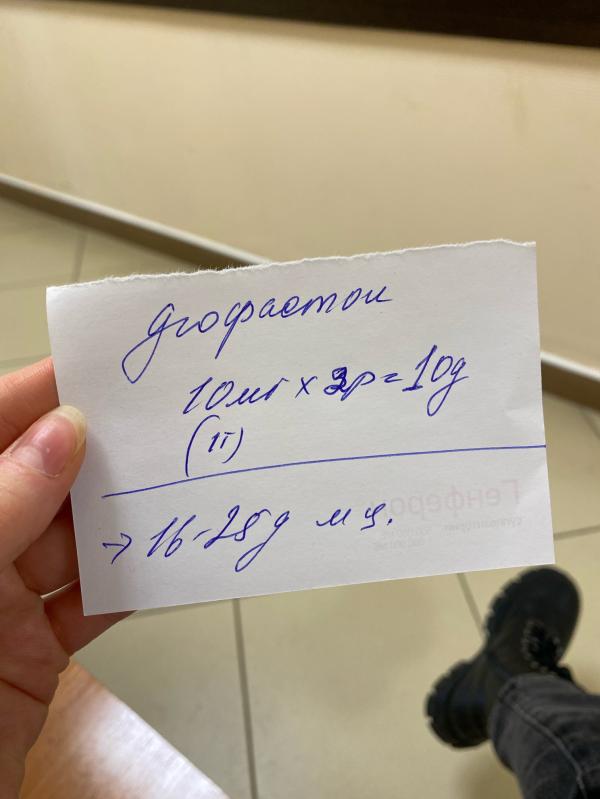 Дюфастон
10мг х 3р = 10д
(1т)
→ 16-25д м ц.
Генферо